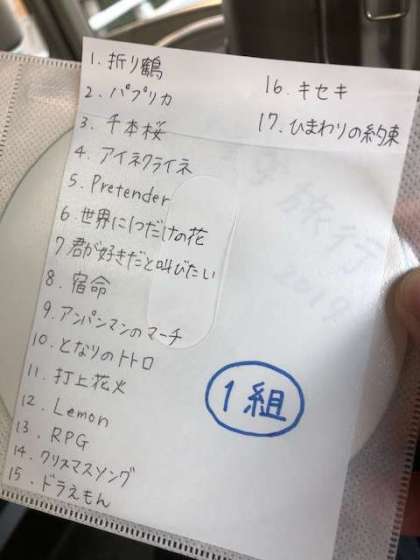 1. 折り鶴
2. パプリカ
3. 千本桜
4. アイネクライネ
5. Pretender
6. 世界に1つだけの花
7. 君が好きだと叫びたい
8. 宿命
9. アンパンマンのマーチ
10. となりのトトロ
11. 打上花火
12. Lemon
13. RPG
14. クリスマスソング
15. ドラえもん
16. キセキ
17. ひまわりの約束
1組
旅行
2019